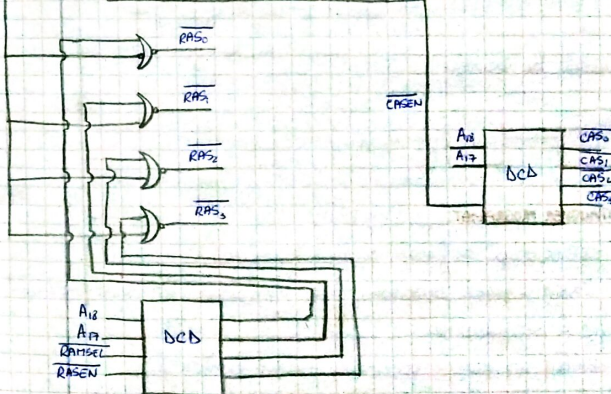 R̅A̅S̅₀̅
R̅A̅S̅₁̅
R̅A̅S̅₂̅
R̅A̅S̅₃̅
C̅A̅S̅E̅N̅
A₁₈
A₁₇
DCD
C̅A̅S̅₀̅
C̅A̅S̅₁̅
C̅A̅S̅₂̅
A₁₈
A₁₇
R̅A̅M̅S̅E̅L̅
R̅A̅S̅E̅N̅
DCD